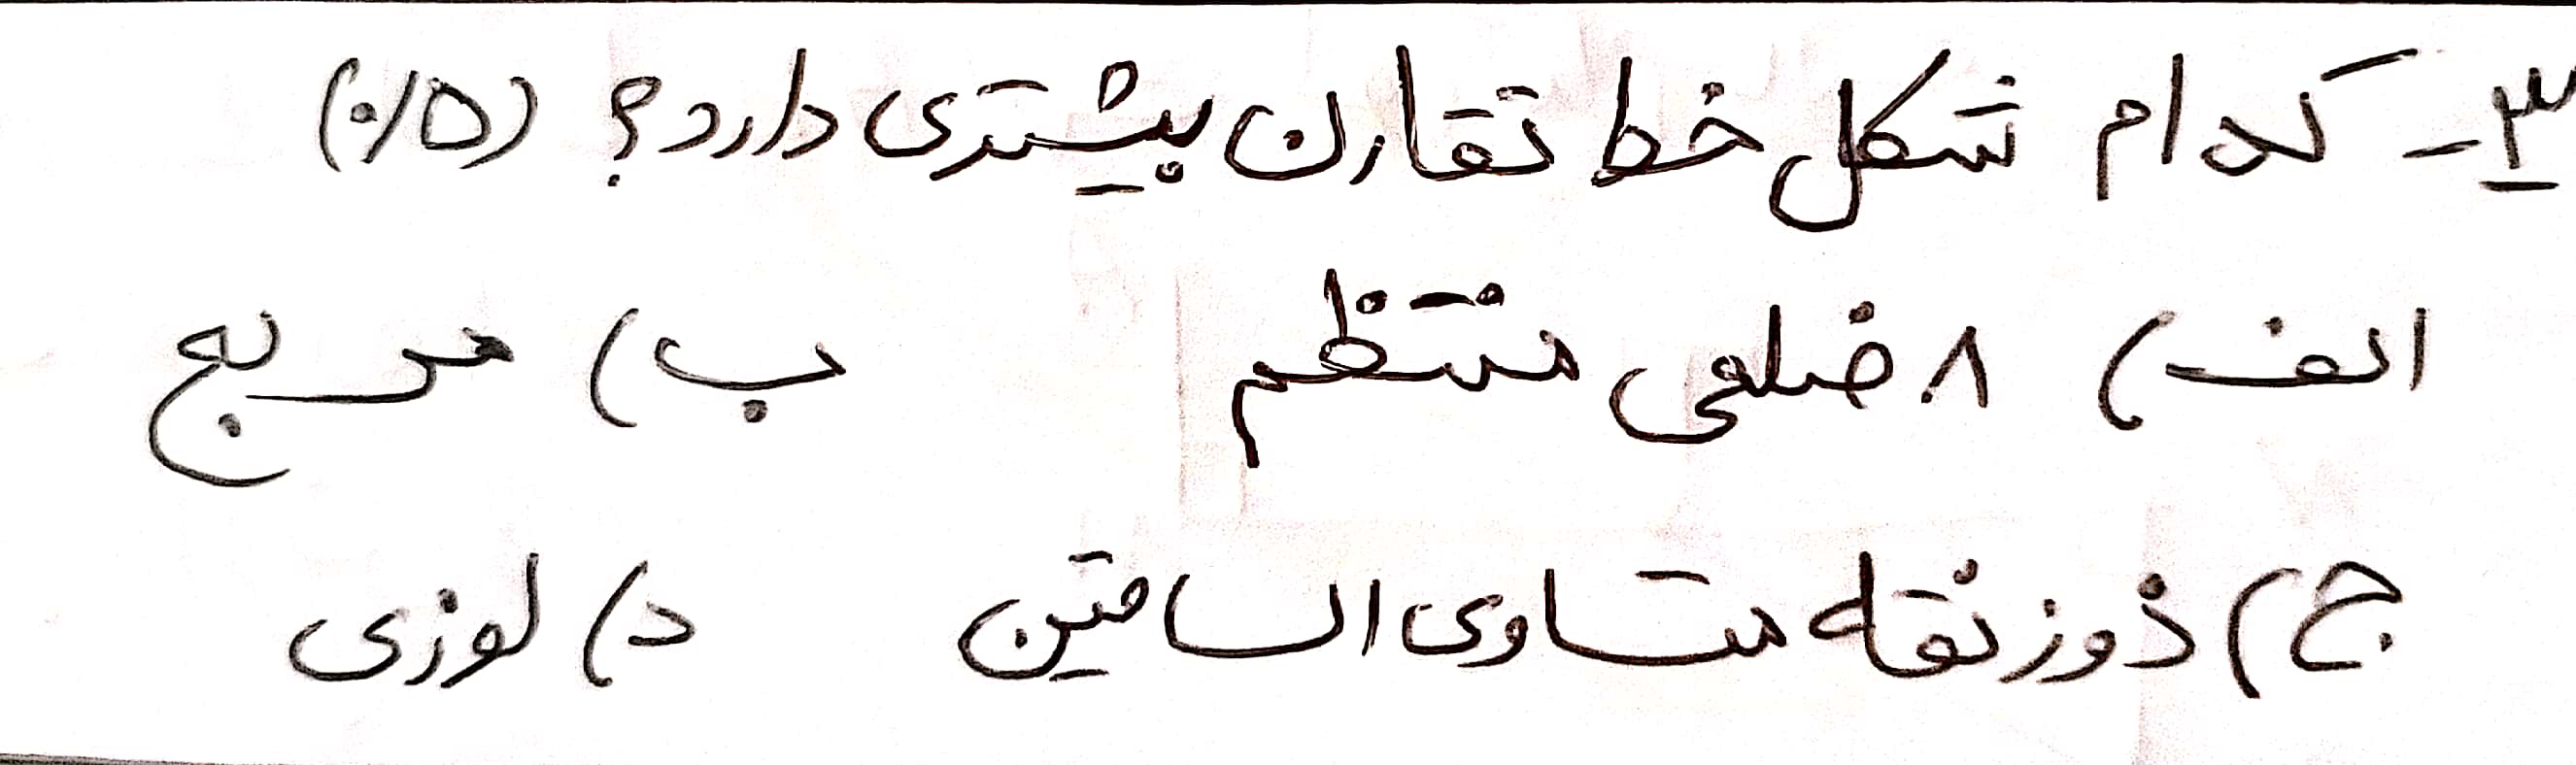 ۳- کدام شکل خط تقارن بیشتری دارد؟ (۰/۵)
الف) ۸ ضلعی منتظم ب) مربع
ج) ذوزنقه متساوی الساقین د) لوزی